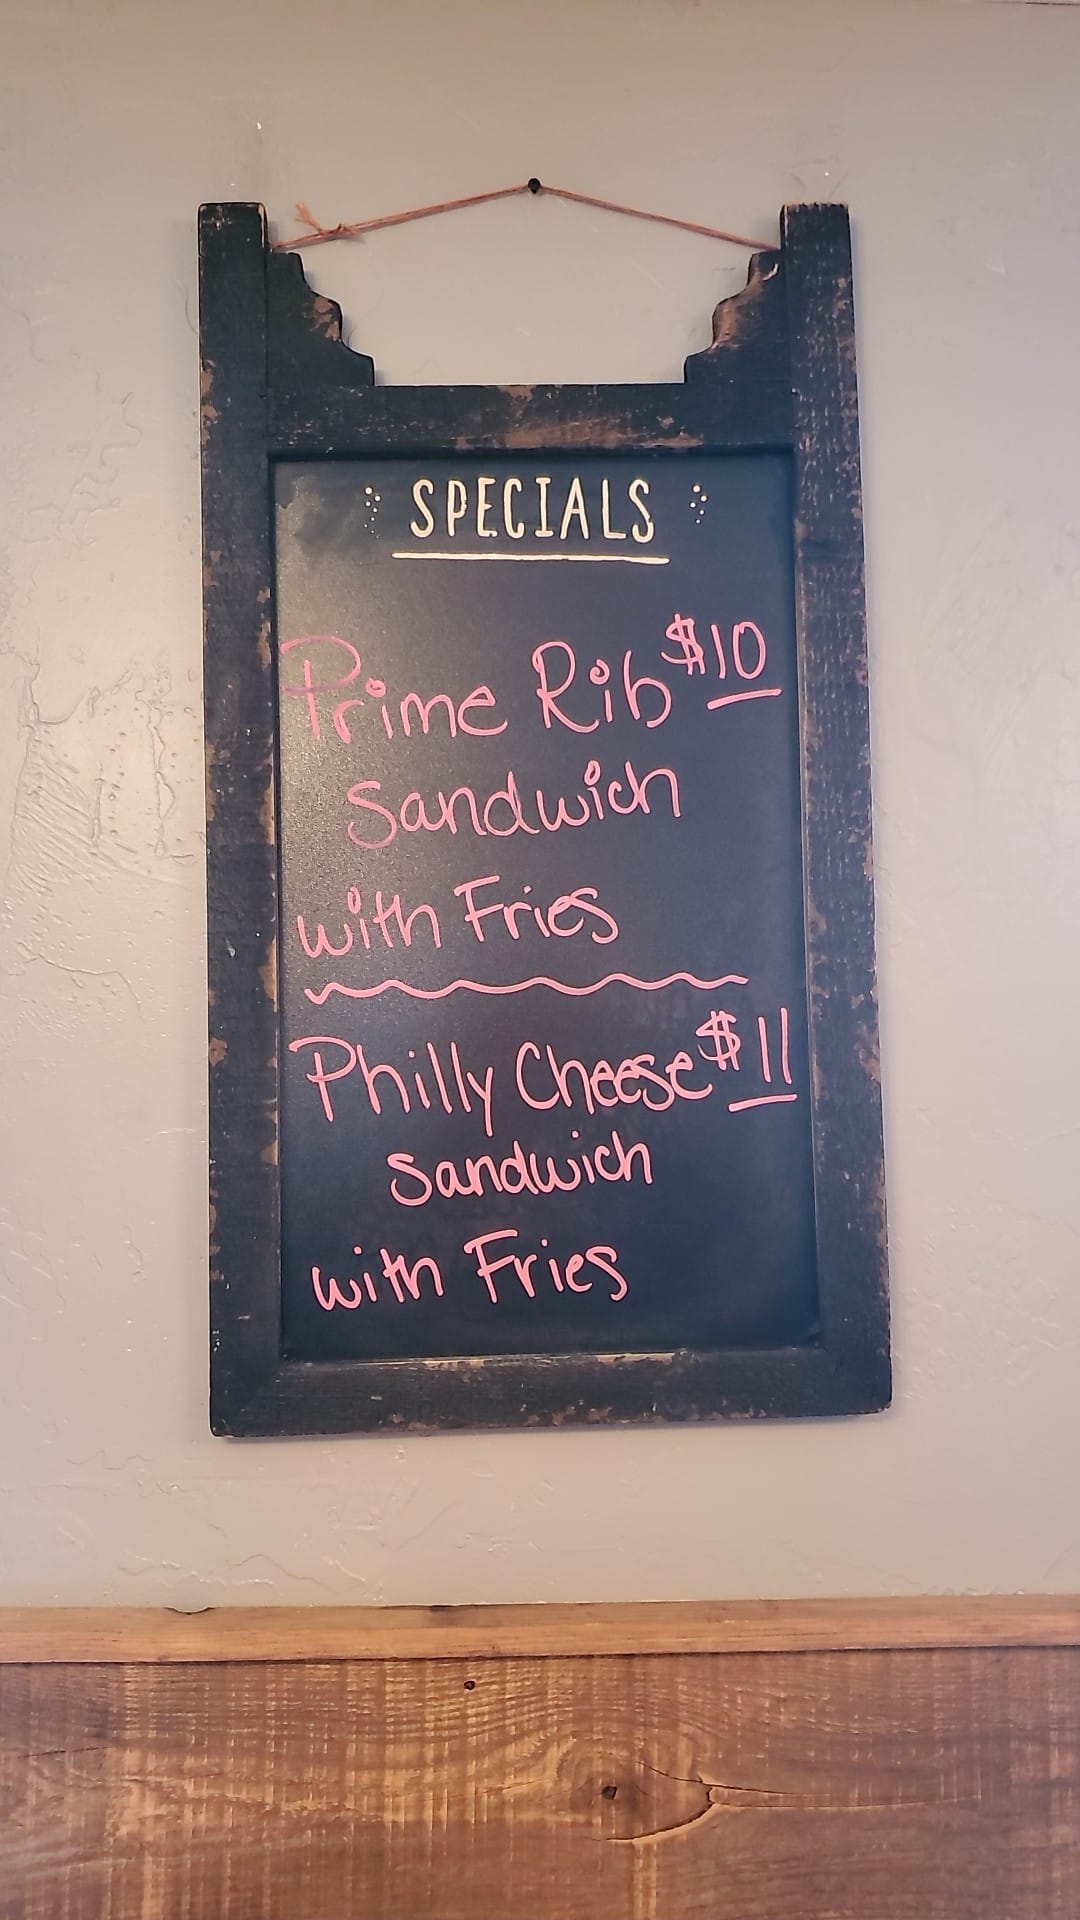 SPECIALS
Prime Rib $10
Sandwich
with Fries
Philly Cheese $11
Sandwich
with Fries